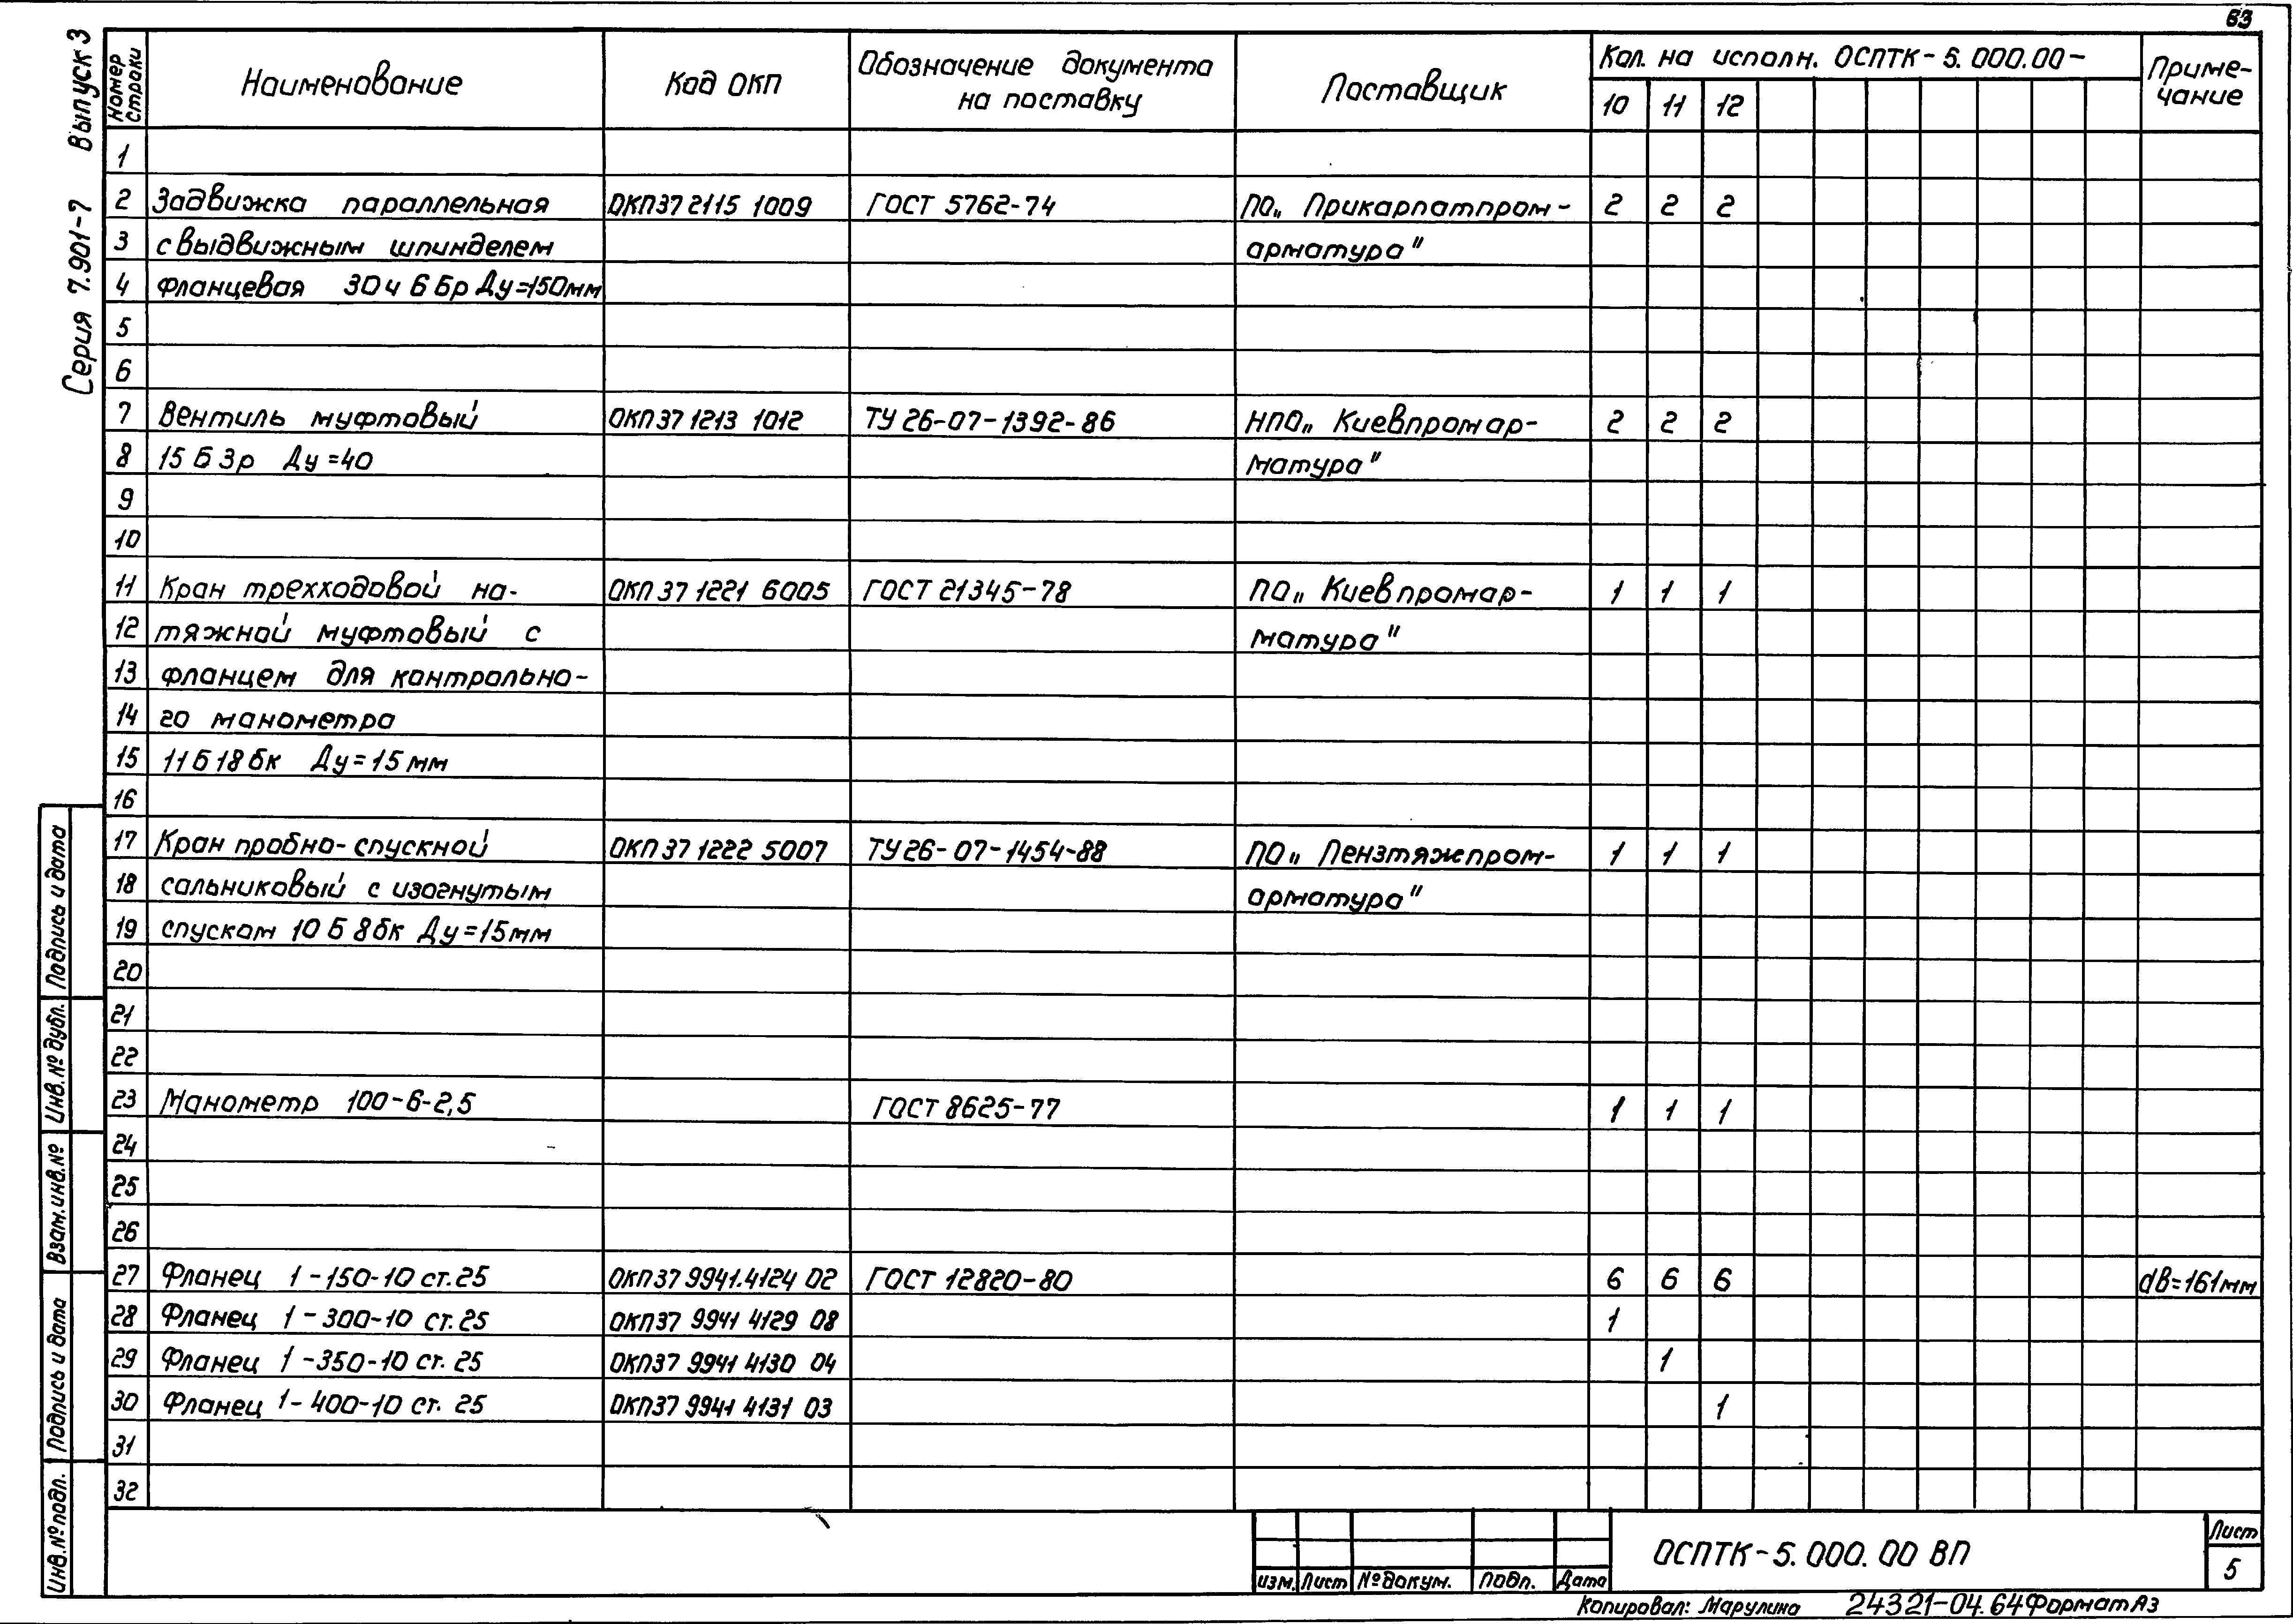 63
Серия 7.901-7 Выпуск 3
Номер строки
Наименование
Код ОКП
Обозначение документа на поставку
Поставщик
Кол. на исполн. ОСПТК-5.000.00-
10 11 12
Приме-
чание
1
2 Задвижка параллельная ОКП37 2115 1009 ГОСТ 5762-74 ПО„ Прикарпатпром- 2 2 2
3 с выдвижным шпинделем арматура"
4 фланцевая 30ч 6 Бр Ду=150мм
5
6
7 Вентиль муфтовый ОКП37 1213 1012 ТУ 26-07-1392-86 НПО„ Киевпромар- 2 2 2
8 15 Б 3р Ду=40 матура"
9
10
11 Кран трехходовой на- ОКП 37 1221 6005 ГОСТ 21345-78 ПО„ Киевпромар- 1 1 1
12 тяжной муфтовый с матура"
13 фланцем для контрольно-
14 го манометра
15 11Б18бк Ду=15мм
16
17 Кран пробно-спускной ОКП 37 1222 5007 ТУ26-07-1454-88 ПО„ Пензтяжпром- 1 1 1
18 сальниковый с изогнутым арматура"
19 спуском 10Б8бк Ду=15мм
20
21
22
23 Манометр 100-6-2,5 ГОСТ 8625-77 1 1 1
24
25
26
27 Фланец 1-150-10 ст.25 ОКП37 9941.4124 02 ГОСТ 12820-80 6 6 6 dв=161мм
28 Фланец 1-300-10 ст.25 ОКП37 9941 4129 08 1
29 Фланец 1-350-10 ст. 25 ОКП37 9941 4130 04 1
30 Фланец 1-400-10 ст. 25 ОКП37 9941 4131 03 1
31
32
Инв.№подл. Подпись и дата Взам.инв.№ Инв.№дубл. Подпись и дата
Изм. Лист №докум. Подп. Дата
ОСПТК-5.000.00 ВП
Лист
5
Копировал: Марулина 24321-04.64 Формат А3